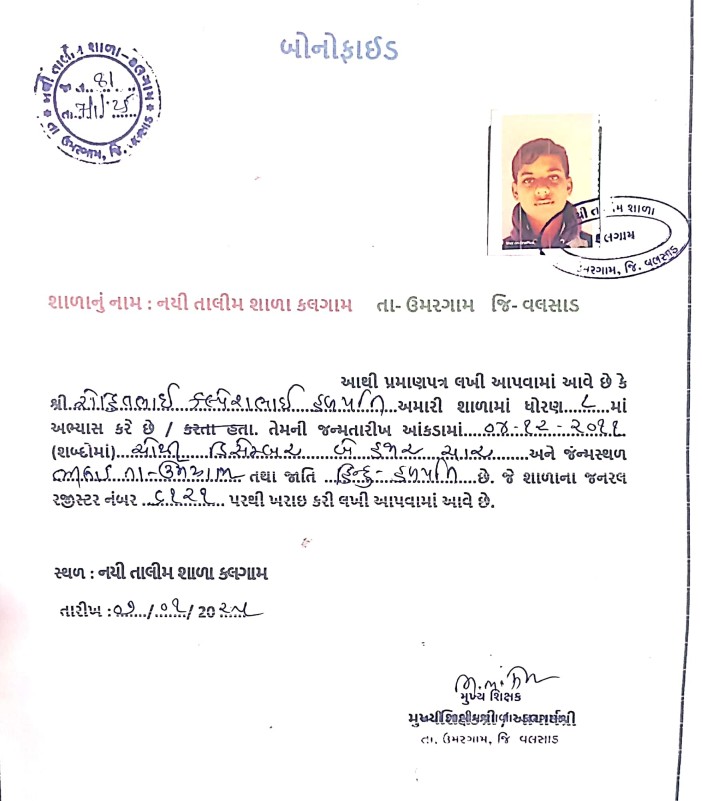 બોનોફાઈડ
નયી તાલીમ શાળા-કલગામ
જા.નં. 81
તા. ઉમરગામ, જિ. વલસાડ
કલગામ
ઉમરગામ, જિ. વલસાડ
શાળાનું નામ : નયી તાલીમ શાળા કલગામ તા- ઉમરગામ જિ- વલસાડ
આથી પ્રમાણપત્ર લખી આપવામાં આવે છે કે
શ્રી રોહિતભાઈ કલ્પેશભાઈ હળપતિ અમારી શાળામાં ધોરણ ૮ માં
અભ્યાસ કરે છે / કરતા હતા. તેમની જન્મતારીખ આંકડામાં ૦૪-૧૨-૨૦૧૧
(શબ્દોમાં) ચોથી ડિસેમ્બર બે હજાર અને જંન્મસ્થળ
તા-ઉમરગામ તથા જાતિ હિન્દુ-હળપતિ છે. જે શાળાના જનરલ
રજીસ્ટર નંબર ૬૧૨૧ પરથી ખરાઇ કરી લખી આપવામાં આવે છે.
સ્થળ : નયી તાલીમ શાળા કલગામ
તારીખ : ૦૭/૦૧/20૨૫
મુખ્ય શિક્ષક
તા. ઉમરગામ, જિ વલસાડ